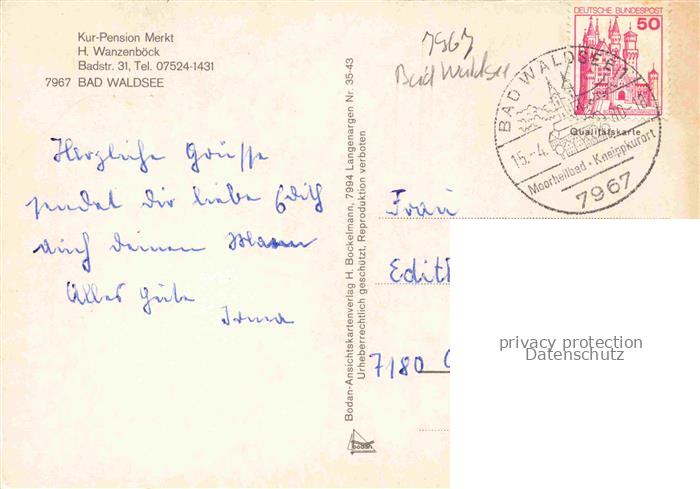 Kur-Pension Merkt
H. Wanzenböck
Badstr. 31, Tel. 07524-1431
7967 BAD WALDSEE
7967
Bad Waldsee
DEUTSCHE BUNDESPOST
50
BAD WALDSEE 1
15.-4.
-10
Moorheilbad · Kneippkurort
7967
Qualitätskarte
Herzliche Grüsse
sendet dir liebe Edith
auch deinen Mann
Alles Gute
Irma
Bodan-Ansichtskartenverlag H. Bockelmann, 7994 Langenargen Nr. 35-43
Urheberrechtlich geschützt, Reproduktion verboten
bodan
Frau
Edith
7180
privacy protection
Datenschutz